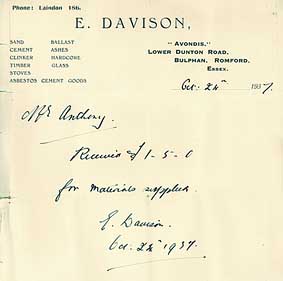 Phone: Laindon 186.
E. DAVISON,
SAND BALLAST
CEMENT ASHES
CLINKER HARDCORE
TIMBER GLASS
STOVES
ASBESTOS CEMENT GOODS
"AVONDIS,"
LOWER DUNTON ROAD,
BULPHAN, ROMFORD,
ESSEX.
Oct. 24th 1937.
Mr Anthony.
Received £1-5-0
for materials supplied
E. Davison.
Oct. 24th 1937.